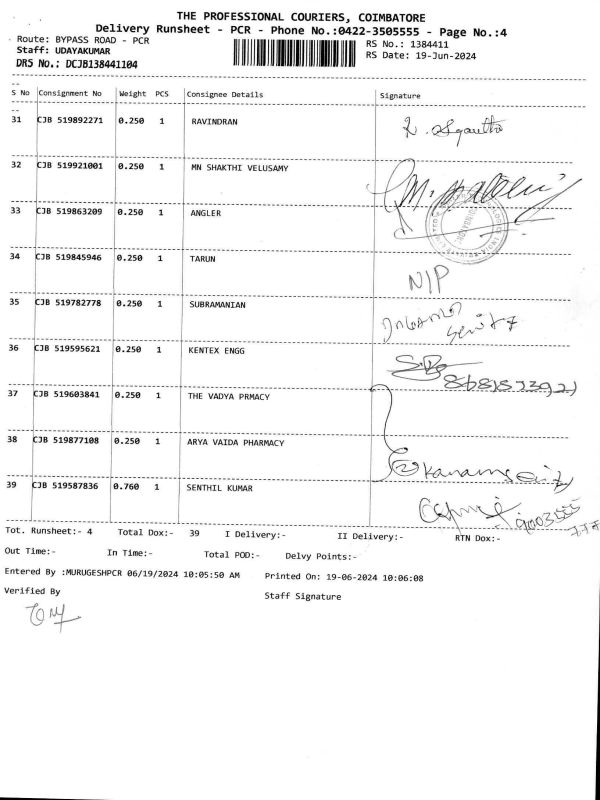 THE PROFESSIONAL COURIERS, COIMBATORE
Delivery Runsheet - PCR - Phone No.:0422-3505555 - Page No.:4
Route: BYPASS ROAD - PCR
RS No.: 1384411
Staff: UDAYAKUMAR
RS Date: 19-Jun-2024
DRS No.: DCJB138441104
--
S No Consignment No Weight PCS Consignee Details Signature
--
31 CJB 519892271 0.250 1 RAVINDRAN
32 CJB 519921001 0.250 1 MN SHAKTHI VELUSAMY
33 CJB 519863209 0.250 1 ANGLER
34 CJB 519845946 0.250 1 TARUN
NIP
35 CJB 519782778 0.250 1 SUBRAMANIAN
36 CJB 519595621 0.250 1 KENTEX ENGG
37 CJB 519603841 0.250 1 THE VADYA PRMACY
38 CJB 519877108 0.250 1 ARYA VAIDA PHARMACY
39 CJB 519587836 0.760 1 SENTHIL KUMAR
Tot. Runsheet:- 4 Total Dox:- 39 I Delivery:- II Delivery:- RTN Dox:-
Out Time:- In Time:- Total POD:- Delvy Points:-
Entered By :MURUGESHPCR 06/19/2024 10:05:50 AM Printed On: 19-06-2024 10:06:08
Verified By
Staff Signature